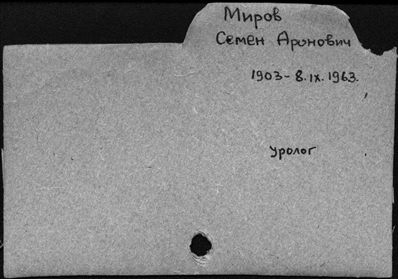 Миров
Семен Аронович
1903- 8.IX.1963.
уролог